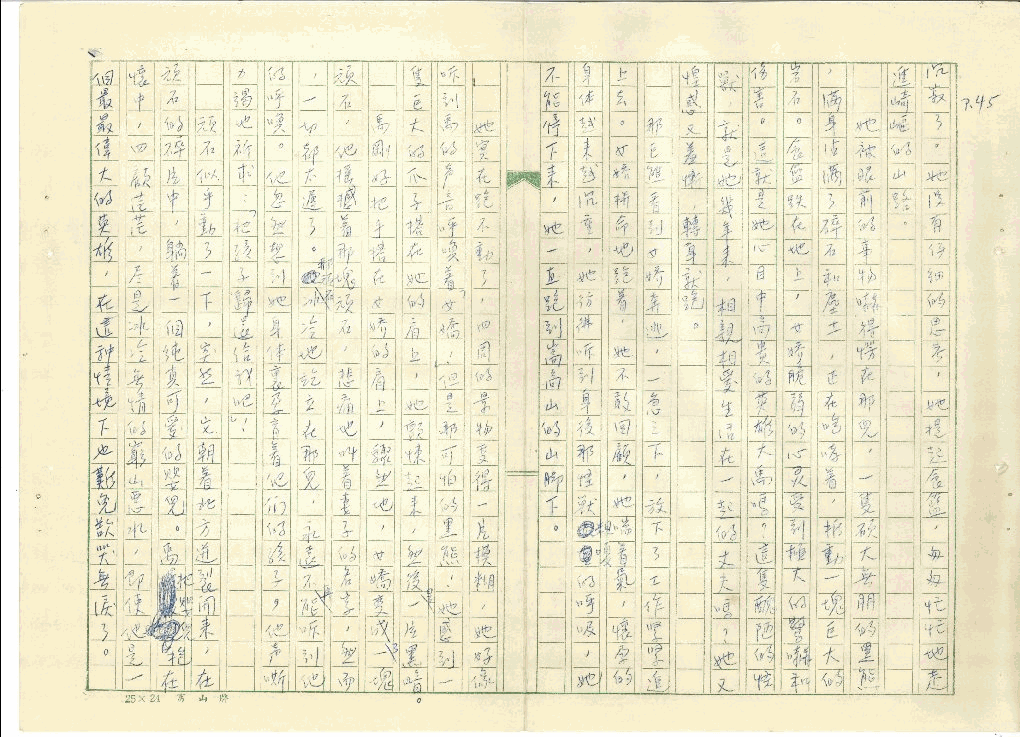 P.45
沉寂了。她沒有仔細的思考，她提起食籃，匆匆忙忙地走
進崎嶇的山路。
她被眼前的事物嚇得愣在那兒，一隻碩大無朋的黑熊
，滿身沾滿了碎石和塵土，正在咆哮着，搬動一塊巨大的
岩石。食籃跌在地上，女嬌脆弱的心灵受到極大的驚嚇和
傷害。這就是她心目中高貴的英雄大禹嗎？這隻醜陋的怪
獸，就是她幾年來，相親相愛生活在一起的丈夫嗎？她又
惶惑又羞慚，轉身就跑。
那巨熊看到女嬌奔逃，一急之下，放下了工作緊緊追
上去。女嬌拼命地跑着，她不敢回顧，她喘着氣，懷孕的
身体越來越沉重，她彷彿听到身後那怪獸粗嗄的呼吸，她
不能停下來，她一直跑到嵩高山的山腳下。
她實在跑不動了，四周的景物變得一片模糊，她好像
听到禹的声音呼喚着女嬌，但是那可怕的黑熊！她感到一
隻巨大的爪子搭在她的肩上，她顫慄起來，然後一片黑暗。
禹剛好把手搭在女嬌的肩上，驟然地，女嬌變成一塊
頑石，他搖撼着那塊頑石，悲痛地叫着妻子的名字，然而
，一切都太遲了。冰冷地訖立在那兒，永遠不能听到他
的呼喚。他忽然想到她身体裏孕育着他們的孩子。他声嘶
力竭地祈求：「把孩子歸還給我吧」！
頑石似乎動了一下，突然，它朝着北方迸裂開來，在
頑石的碎片中，躺着一個純真可愛的嬰兒。禹把嬰兒抱在
懷中，四顧茫茫，尽是冰冷無情的窮山惡水，即使他是一
個最最偉大的英雄，在這种情境下也難免欲哭無淚了。
25×24